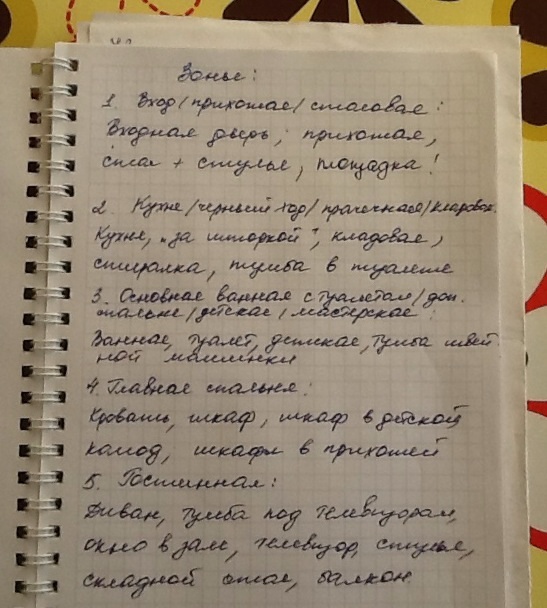 Зоны:
1. Вход/прихожая/столовая:
Входная дверь, прихожая,
стол + стулья, площадка!
2. Кухня/черный ход/прачечная/кладовая.
Кухня, „за шторкой", кладовая,
стиралка, тумба в туалете
3. Основная ванная с туалетом/доп.
спальня/детская/мастерская:
Ванная, туалет, детская, тумба швей
ной машинки
4. Главная спальня:
Кровать, шкаф, шкаф в детской
комод, шкафы в прихожей
5. Гостинная:
Диван, тумба под телевизором,
окно в зале, телевизор, стулья,
складной стол, балкон.